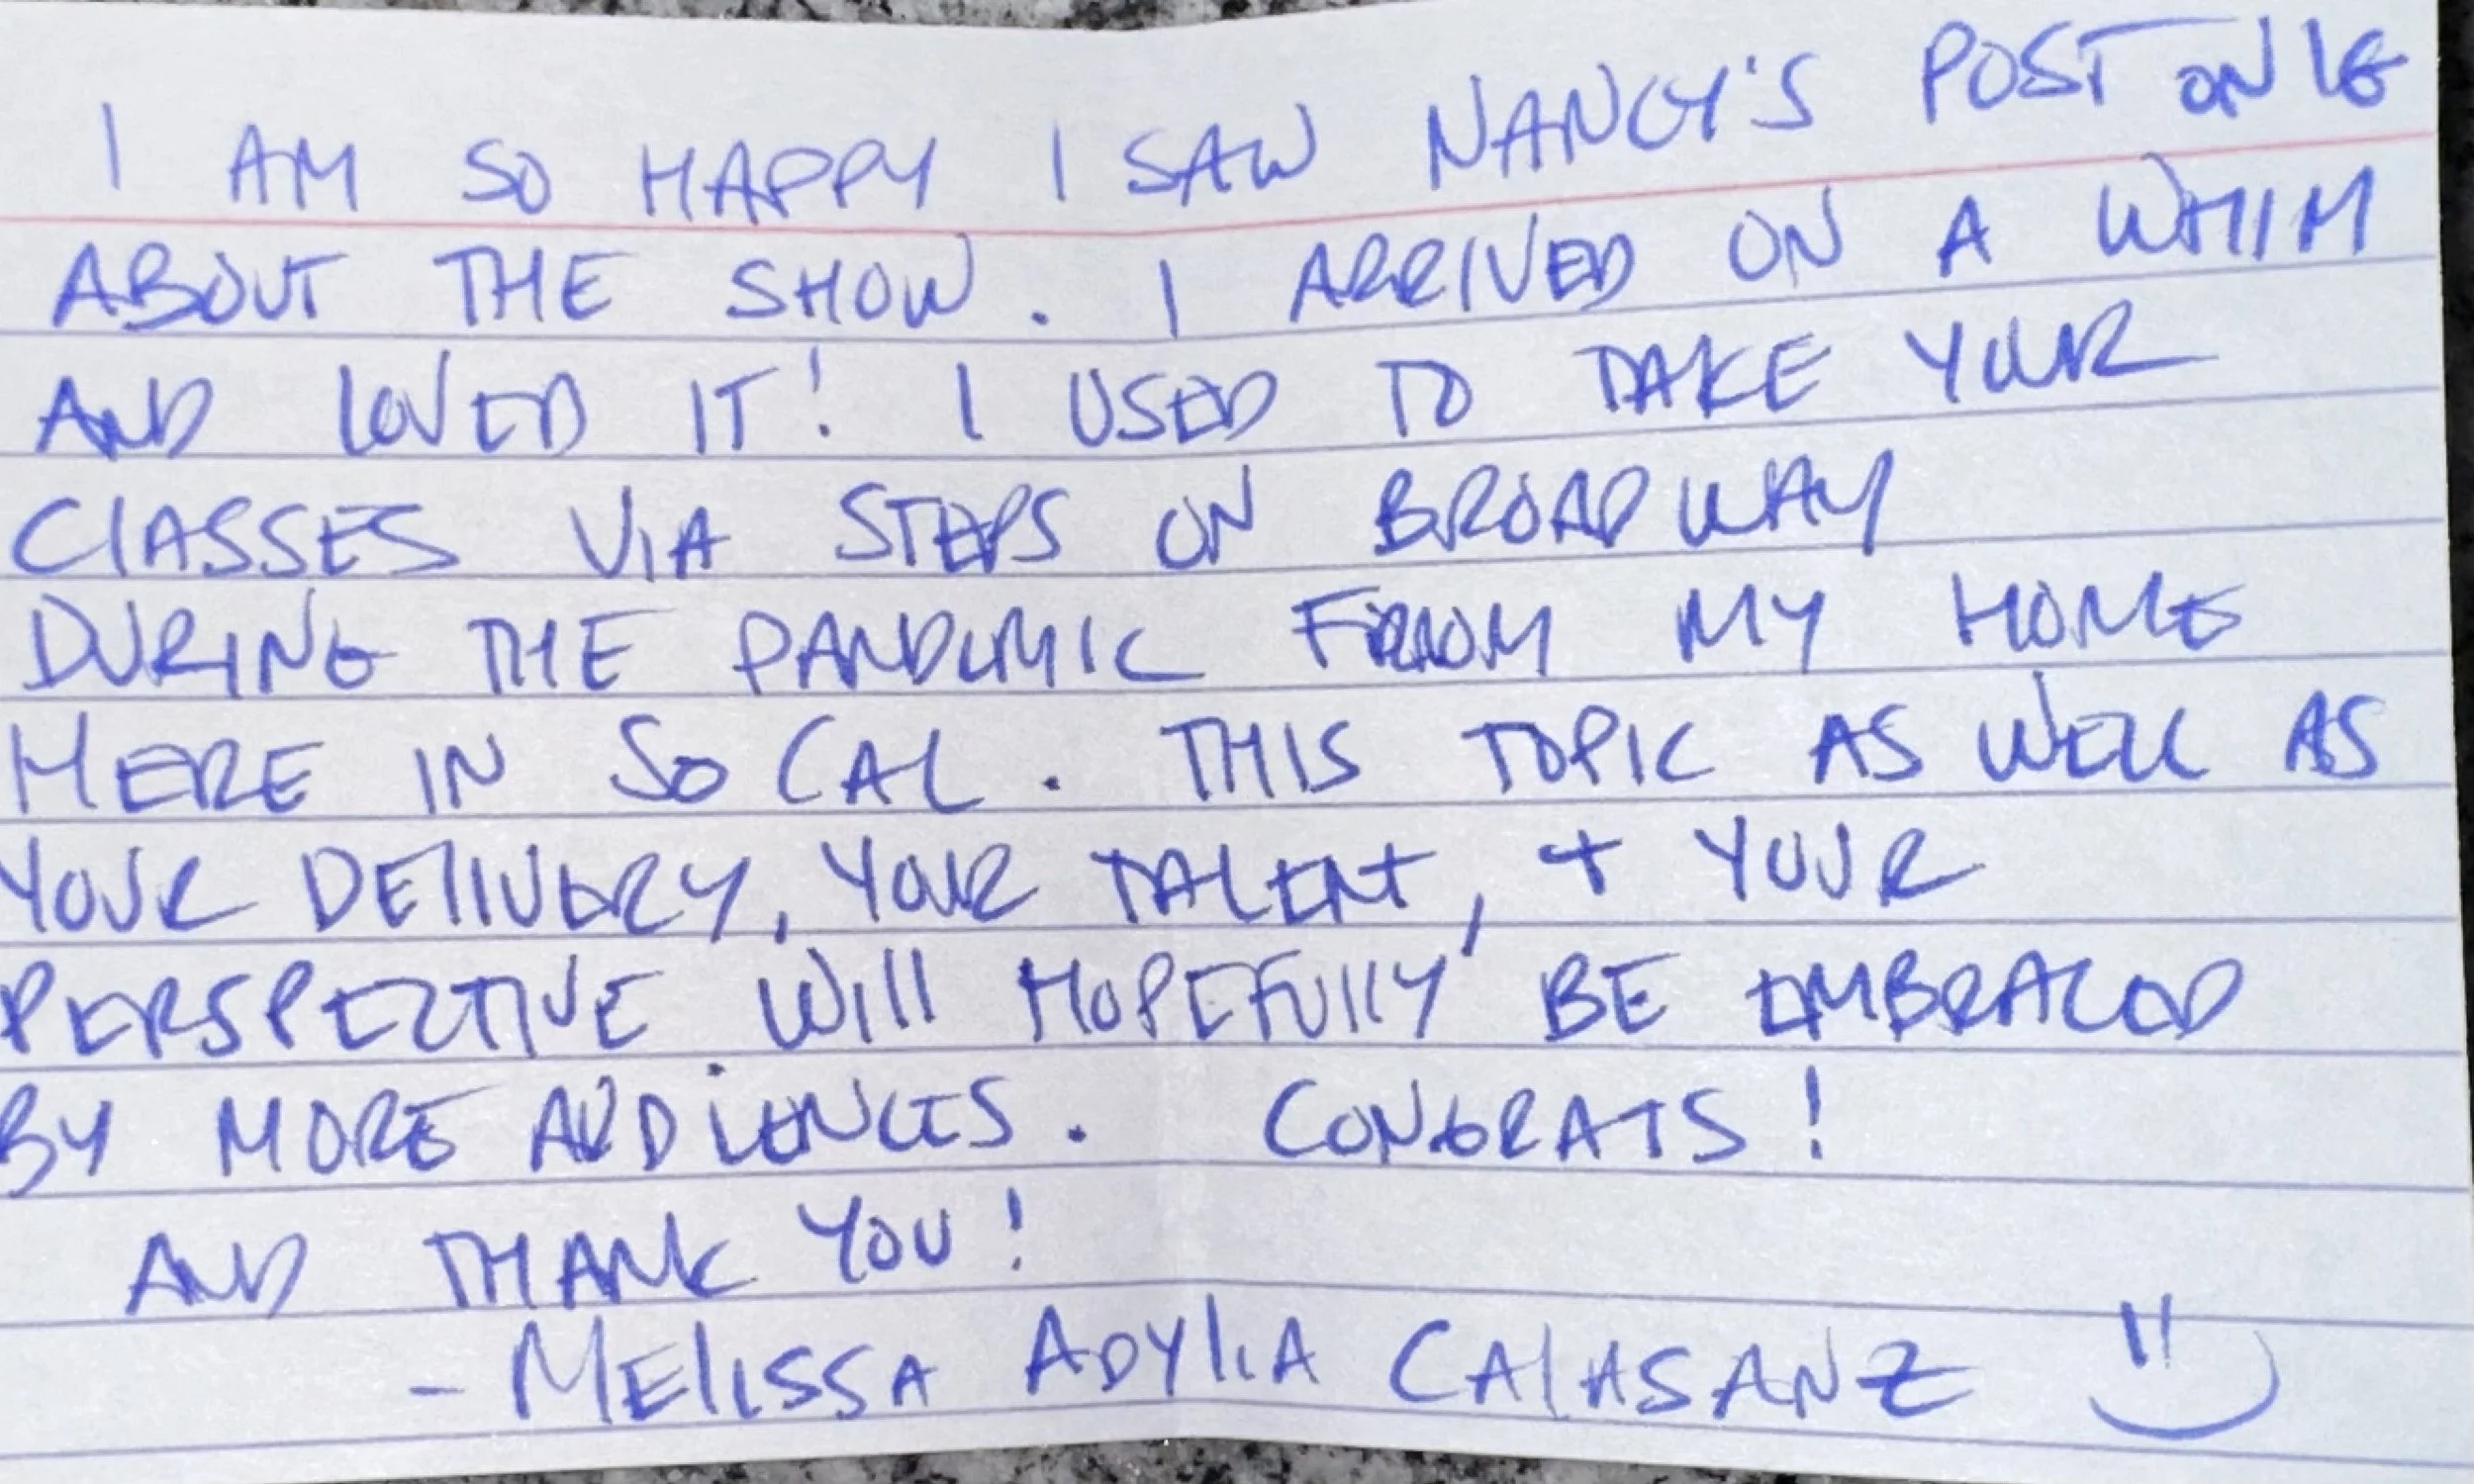 I AM SO HAPPY I SAW NANCY'S POST ON IG
ABOUT THE SHOW. I ARRIVED ON A WHIM
AND LOVED IT! I USED TO TAKE YOUR
CLASSES VIA STEPS ON BROADWAY
DURING THE PANDEMIC FROM MY HOME
HERE IN SO CAL. THIS TOPIC AS WELL AS
YOUR DELIVERY, YOUR TALENT, + YOUR
PERSPECTIVE WILL HOPEFULLY BE EMBRACED
BY MORE AUDIENCES. CONGRATS!
AND THANK YOU!
- MELISSA ADYLIA CALASANZ